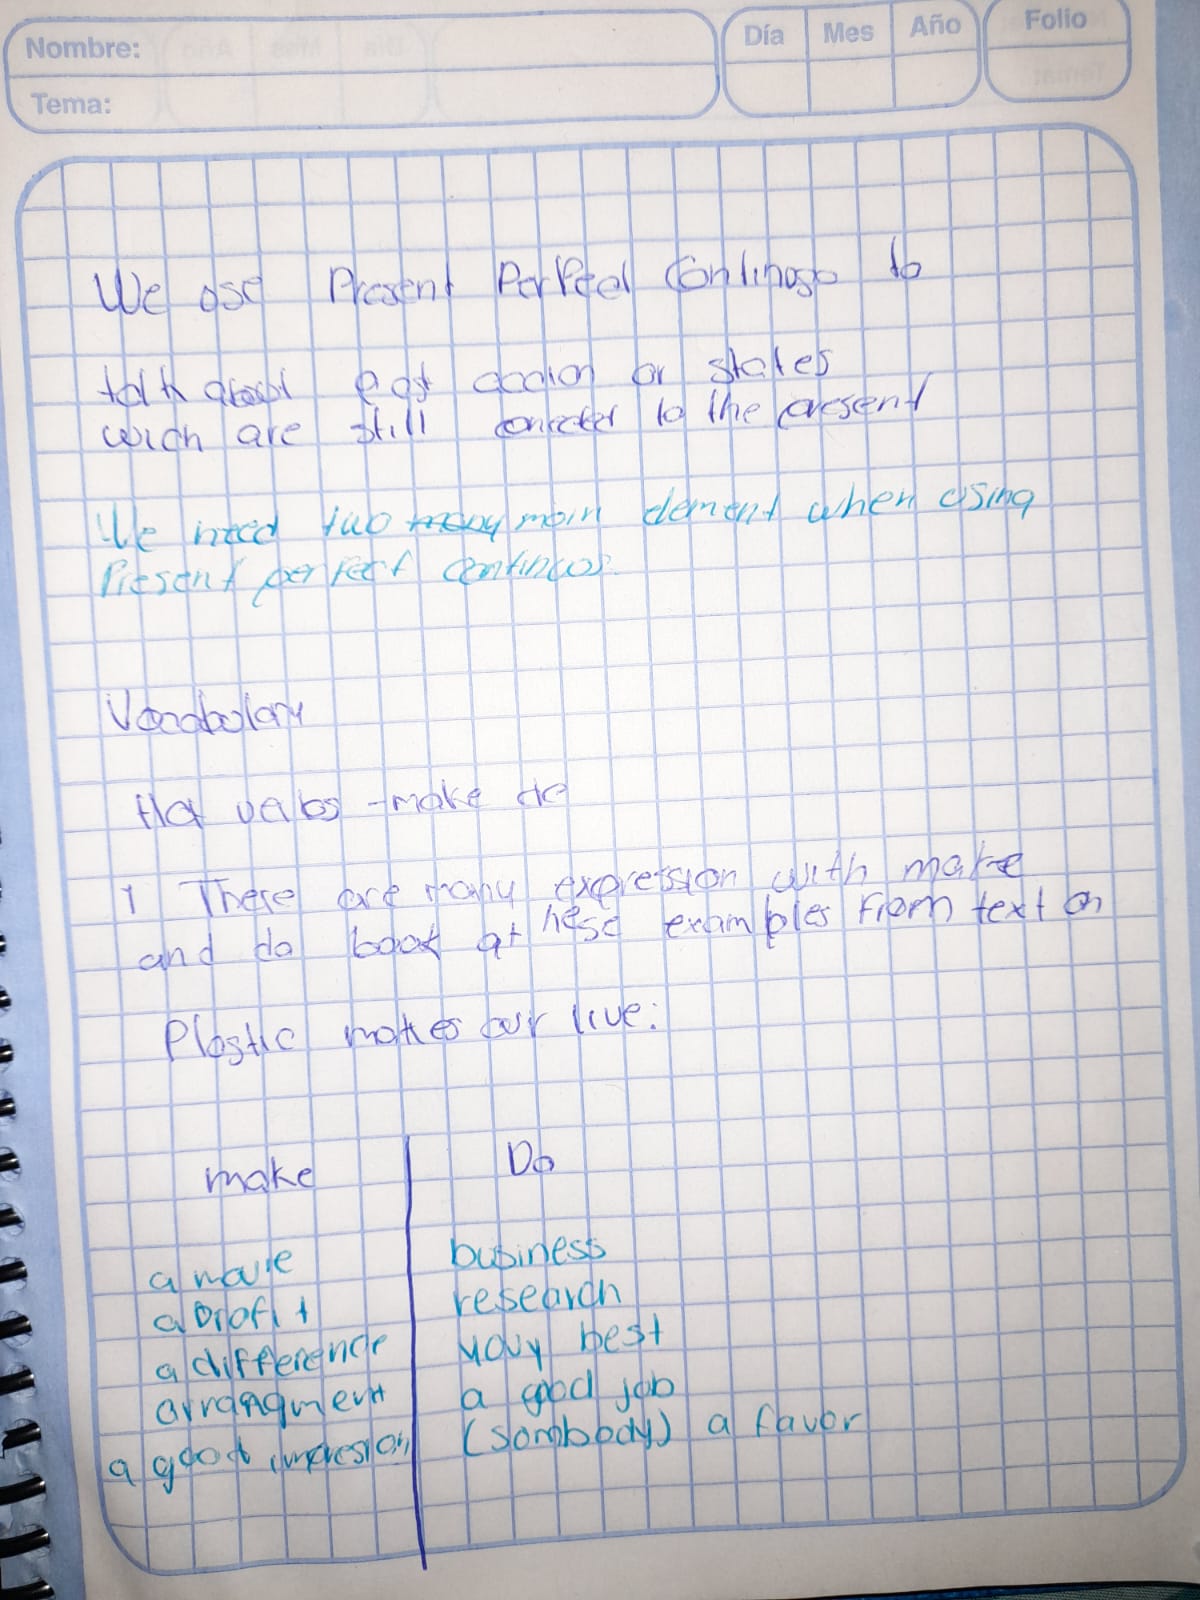 Nombre:
Tema:
Día Mes Año Folio
We use Present Perfect Continuso to
talk about past action or states
wich are still conected to the present
We need two main element when using
Present perfect continuos.
Vocabulary
Hot verbs - make do
1 These are many expression with make
and do look at hese examples from text on
Plastic makes our live:
make Do
a move business
a profit research
a difference your best
arrangment a good job
a good impresion (sombody) a favor